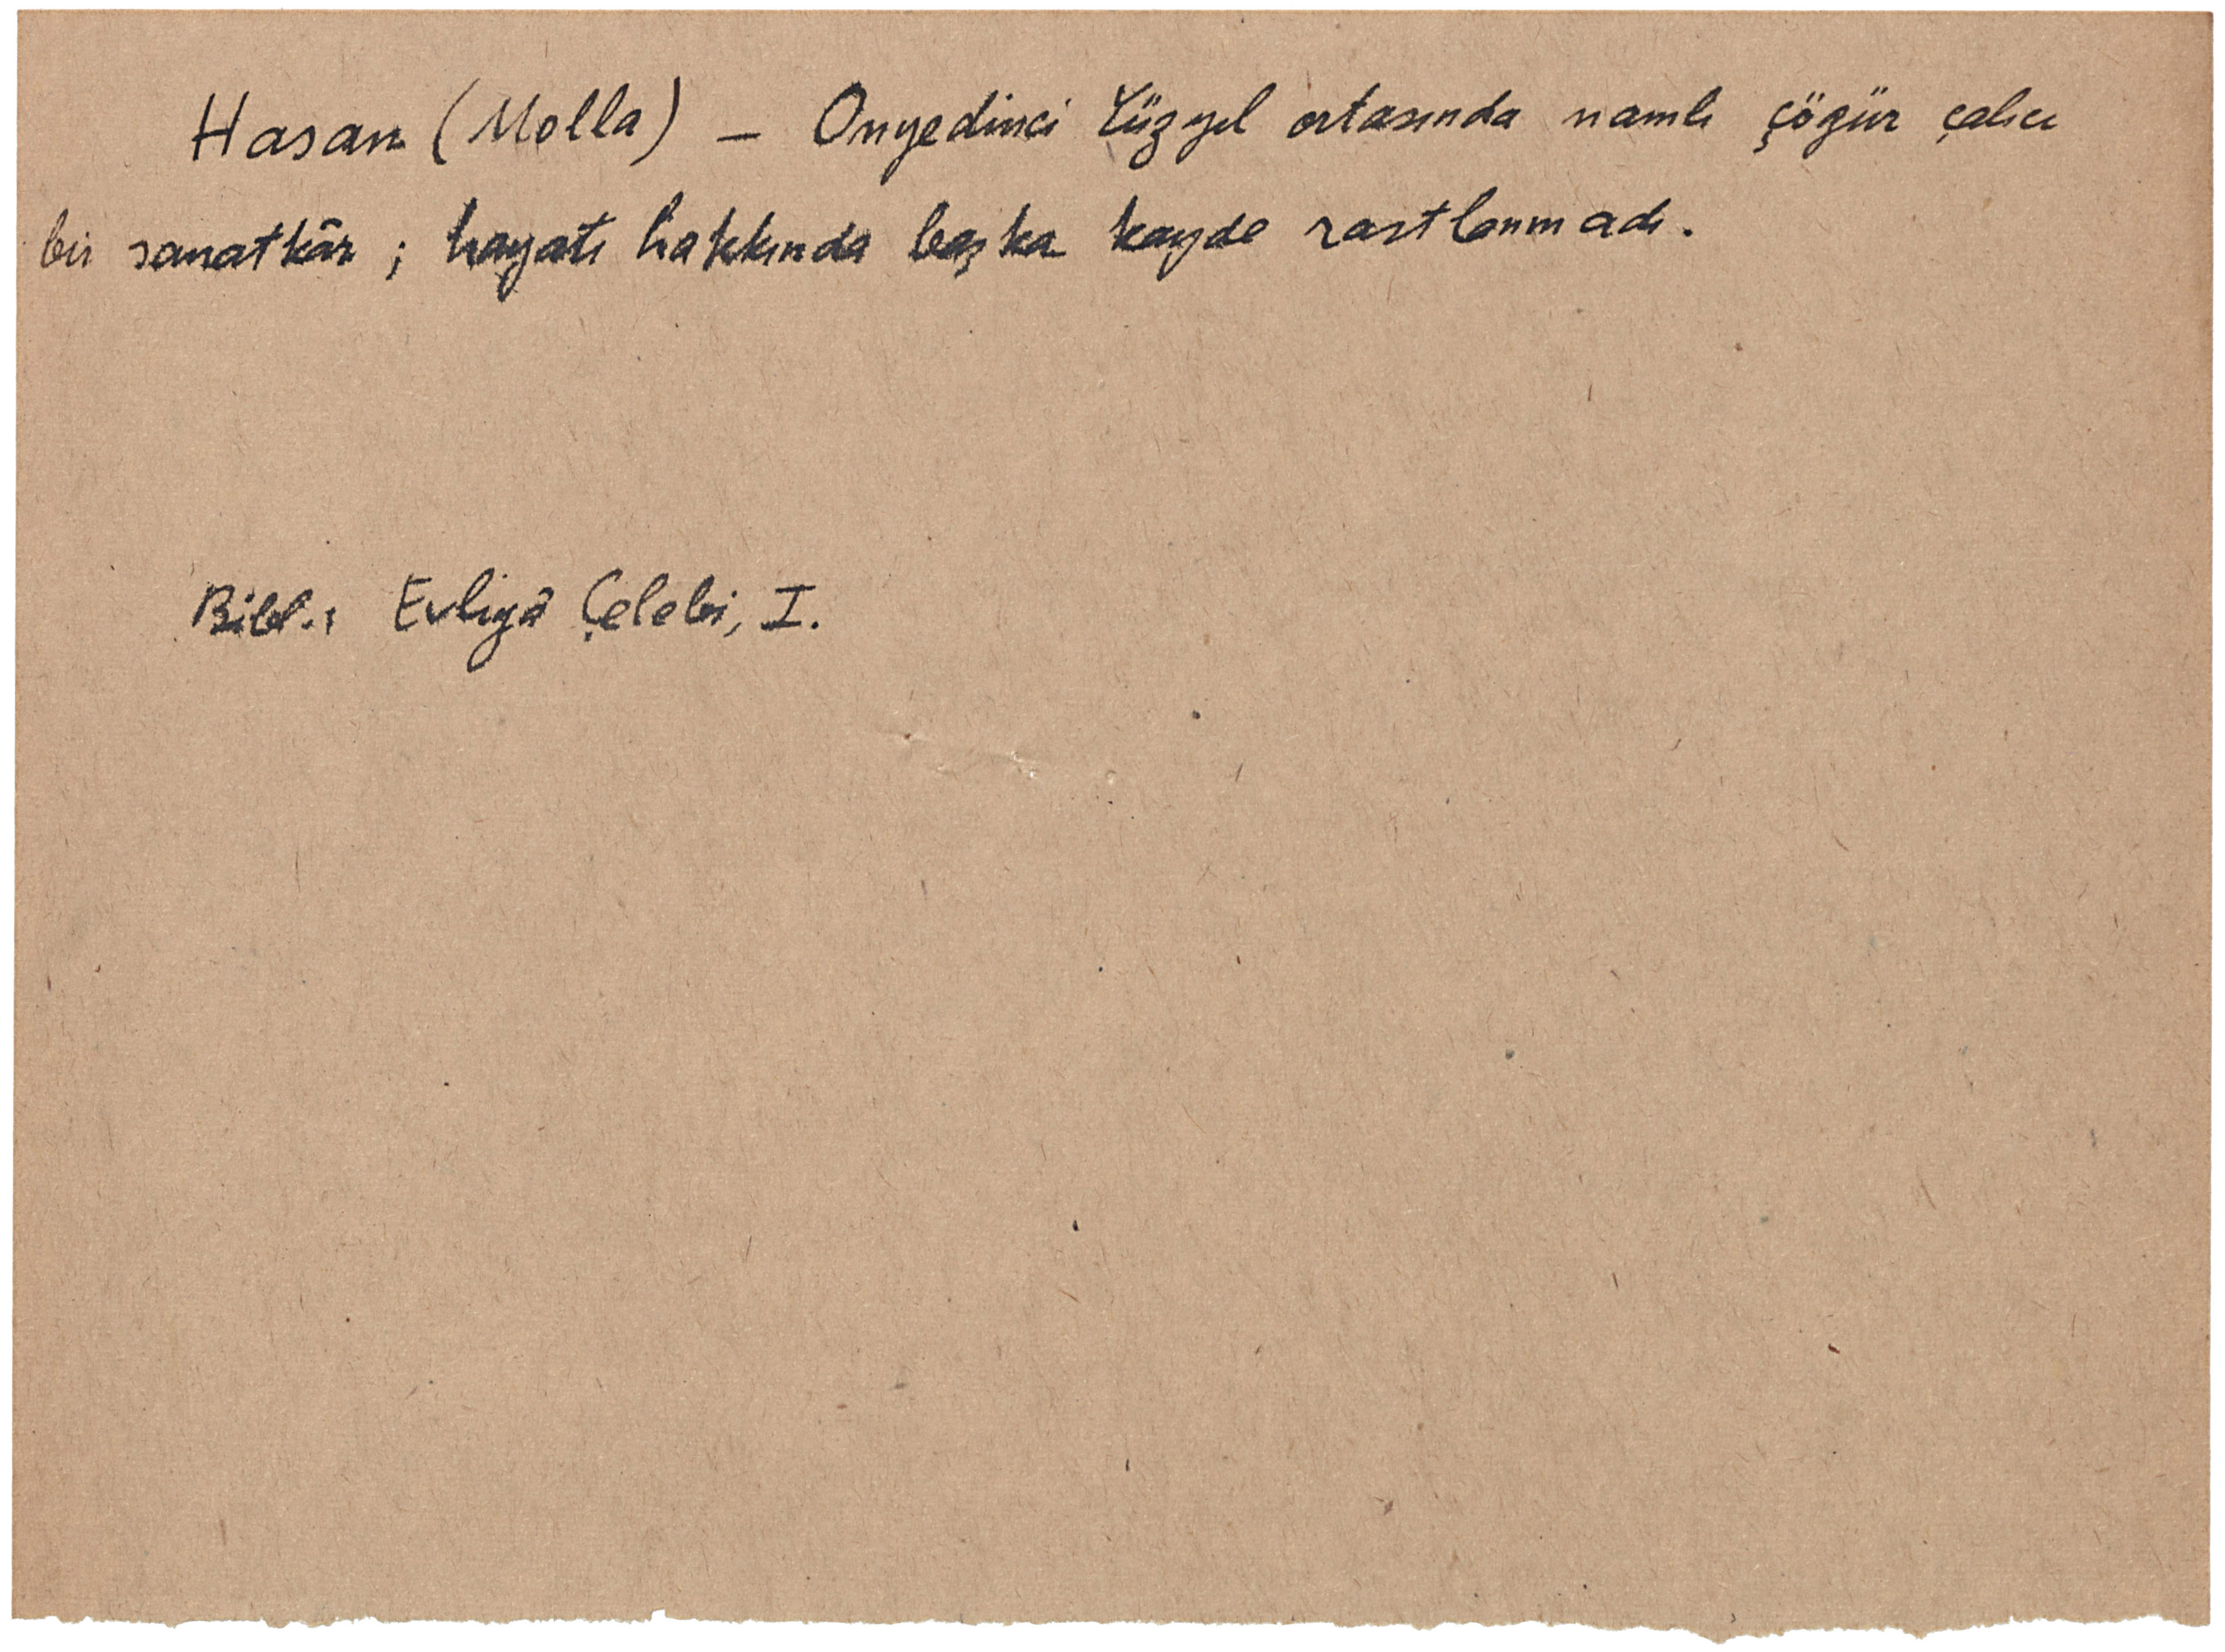 Hasan (Molla) — Onyedinci Yüzyıl ortasında namlı çöğür çalıcı
bir sanatkâr ; hayatı hakkında başka kayde rastlanmadı.
Bibl.: Evliyâ Çelebi, I.